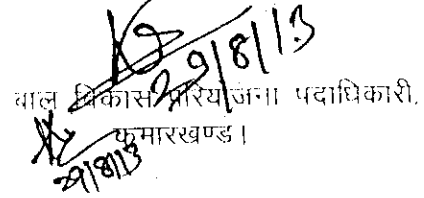 29/8/13
बाल विकास परियोजना पदाधिकारी,
कुमारखण्ड।
29/8/13